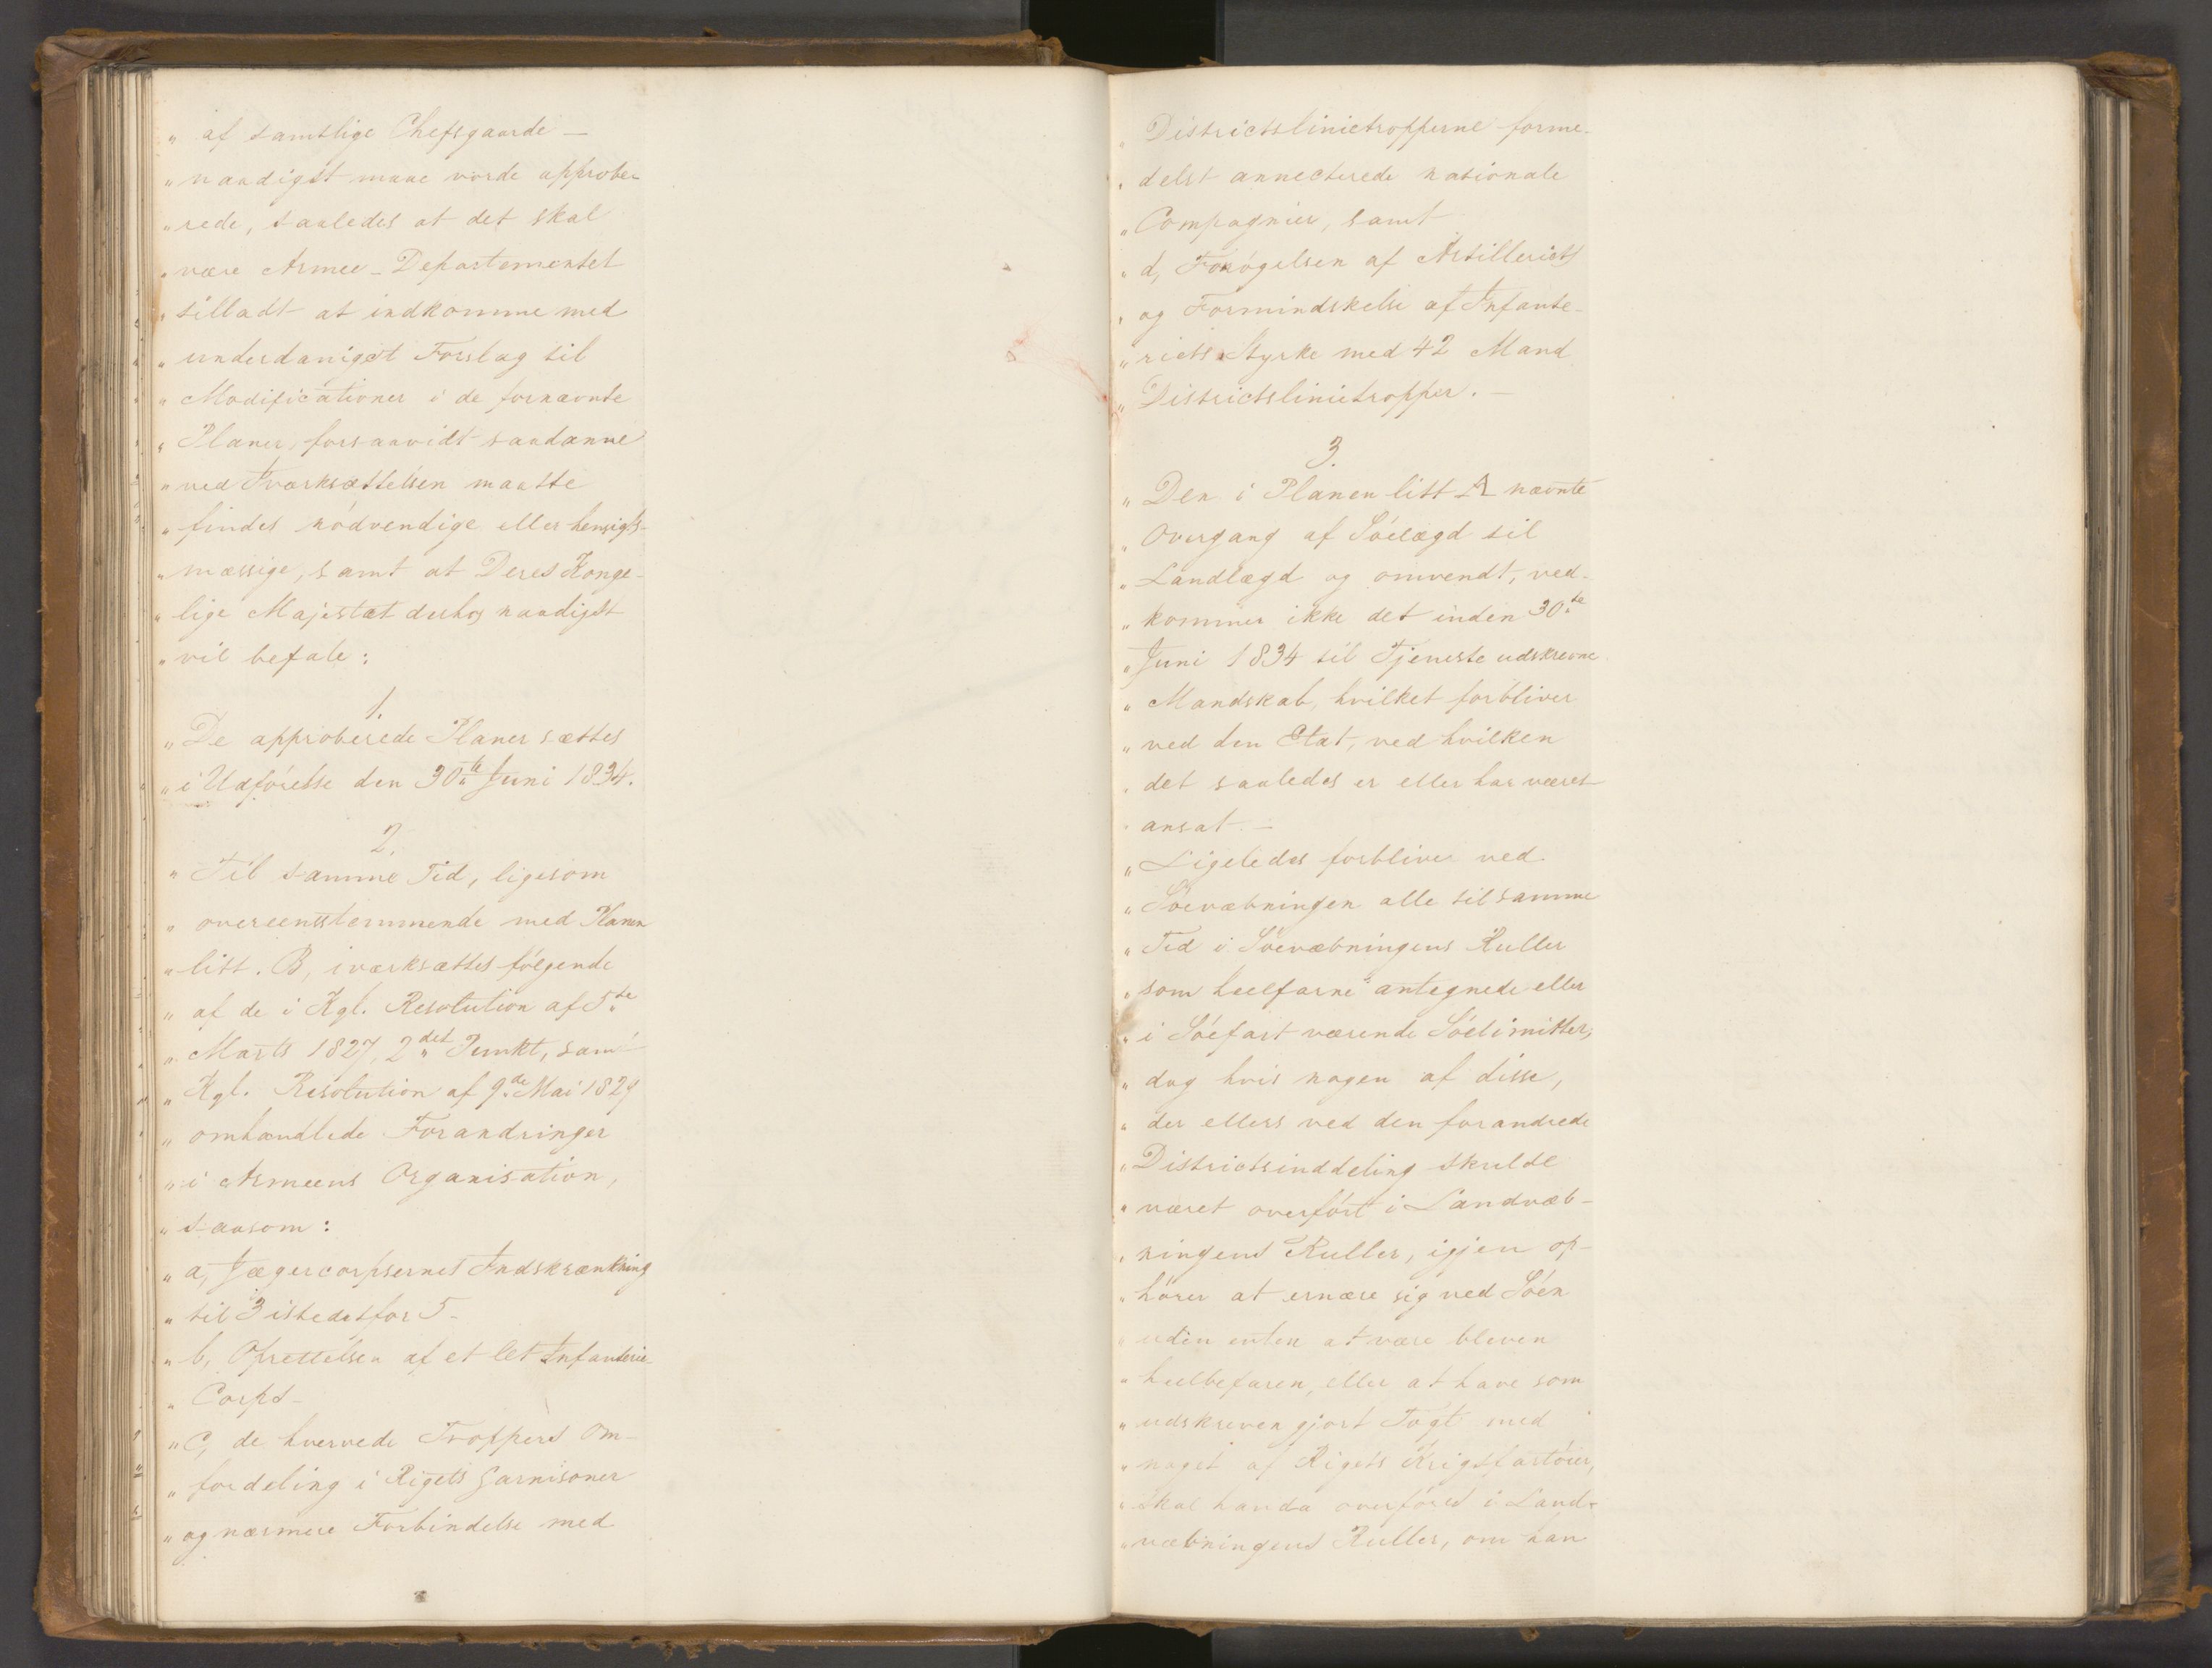 „ af samtlige Chefsgaarde —
„ naadigst maae vorde approbe-
„ rede, saaledes at det skal
„ være Armee-Departementet
„ tilladt at indkomme med
„ underdanigst Forslag til
„ Modificationer i de fornævnte
„ Planer, forsaavidt saadanne
„ ved Iværksættelsen maatte
„ findes nödvendige eller hensigts-
„ mæssige, samt at Deres Konge-
„ lige Majestæt derhos naadigst
„ vil befale:
1.
„ De approberede Planer sættes
„ i Udförelse den 30te Juni 1834.
2.
„ Til samme Tid, ligesom
„ overeensstemmende med Planen
„ litt. B, iværksættes fölgende
„ af de i Kgl. Resolution af 5te
„ Marts 1827, 2det Punkt, samt
„ Kgl. Resolution af 9de Mai 1829
„ omhandlede Forandringer
„ i Armeens Organisation,
„ saasom:
„ a, Jægercorpsernes Indskrænkning
„ til 3 istedetfor 5 -
„ b, Oprettelsen af et let Infanterie-
„ Corps -
„ c, de hvervede Troppers Om-
„ fordeling i Rigets Garnisoner
„ og nærmere Forbindelse med
„ Districtslinietropperne forme-
„ delst annecterede nationale
„ Compagnier, samt
„ d, Forögelsen af Artilleriets
„ og Formindskelse af Infante-
„ riets Styrke med 42 Mand
„ Districtslinietropper. —
3.
„ Den i Planen litt A nævnte
„ Overgang af Söelægd til
„ Landlægd og omvendt, ved-
„ kommer ikke det inden 30te
„ Juni 1834 til Tjeneste udskrevne
„ Mandskab, hvilket forbliver
„ ved den Etat, ved hvilken
„ det saaledes er eller har været
„ ansat. —
„ Ligeledes forblive ved
„ Söeværbningen alle til samme
„ Tid i Söeværbningens Ruller
„ som heelfarne antegnede eller
„ i Söefart værende Söelimitter,
„ dog hvis nogen af disse,
„ der ellers ved den forandrede
„ Districtsinddeling skulde
„ været overfört i Landvæb-
„ ningens Ruller, igjen op-
„ hörer at ernære sig ved Söen
„ uden enten at være bleven
„ heelbefaren, eller at have som
„ udskreven gjort Togt med
„ noget af Rigets Krigsfartöier,
„ skal han da overföres i Land-
„ væbningens Ruller, om han